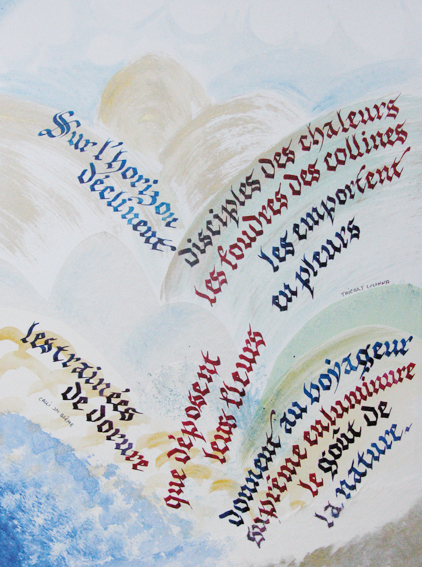 Sur l'horizon
déclinent
disciples des chaleurs
les foudres des collines
les emportent
en pleurs
THIERRY
les trainées
de dorure
que déposent
leurs fleurs
donnent au voyageur
suprême enluminure
le goût de
la nature.